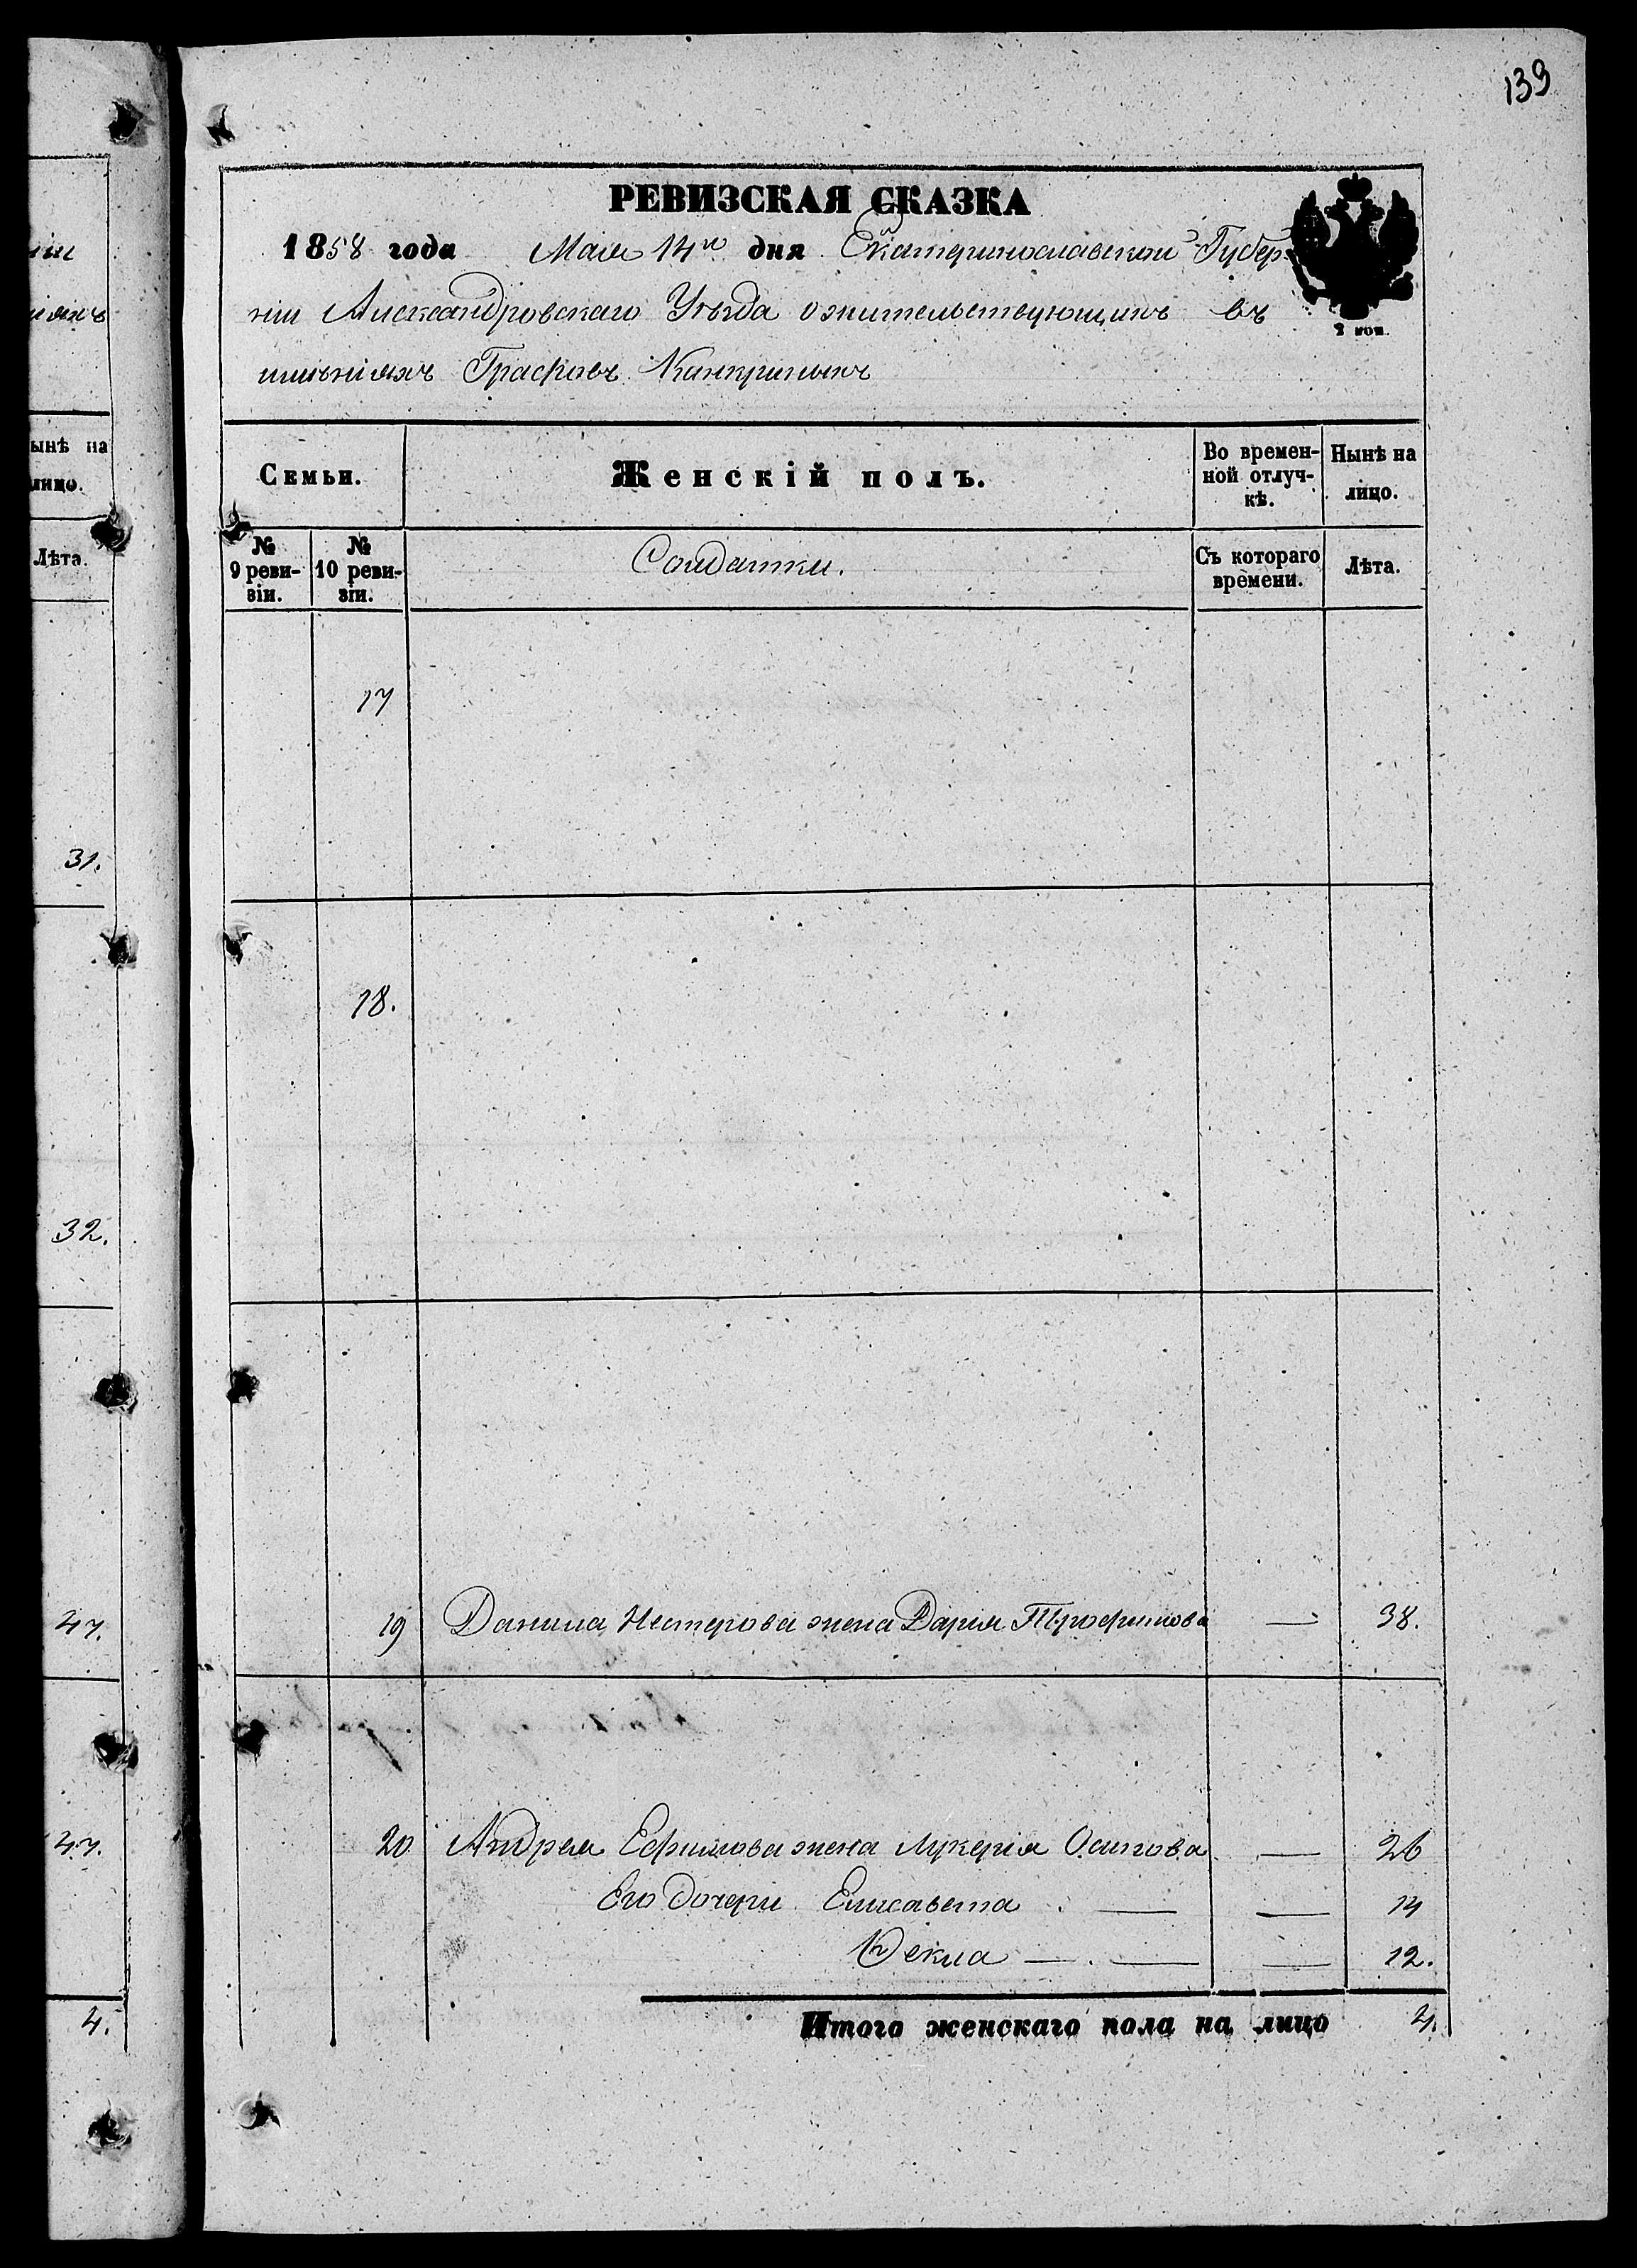 139
РЕВИЗСКАЯ СКАЗКА
1858 года Мая 14го дня Екатеринославской Губер-
ніи Александровскаго Уѣзда о жительствующихъ въ
имѣніяхъ Графовъ Канкриныхъ
2 коп.
Семьи. Женскій полъ. Во времен- Нынѣ на
ной отлуч- лицо.
кѣ.
№ № Солдатки. Съ котораго Лѣта.
9 реви- 10 реви- времени.
зіи. зіи.
17
18.
19 Данила Нестерова жена Дарья Трофимова — 38.
20 Андрея Ефимова жена Лукерія Осипова — 26
Его дочери Елисавета — — 14
Фекла — — — 12.
Итого женскаго пола на лицо 4.
ынѣ на
лицо.
Лѣта.
31.
32.
47.
47.
4.